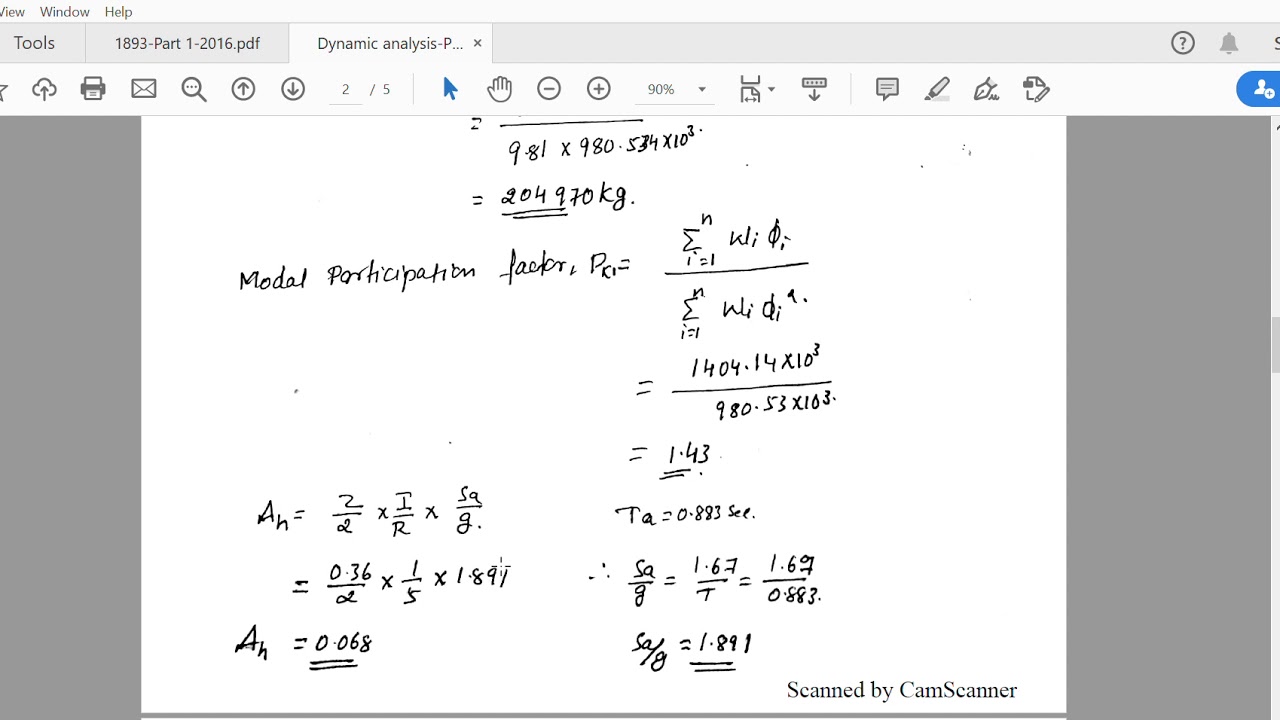 View Window Help
Tools 1893-Part 1-2016.pdf Dynamic analysis-P... × ?
2 / 5 90%
=
9.81 × 980.534×10³.
= 204970kg.
Modal Participation factor, Pk1= Σ Wi ϕi
n
i=1
Σ Wi ϕi².
n
i=1
= 1404.14×10³
980.53×103.
= 1.43
Ah= Z/2 × I/R × Sa/g. Ta=0.883 Sec.
= 0.36/2 × 1/5 × 1.891 ∴ Sa/g = 1.67/T = 1.67/0.883.
Ah = 0.068 Sa/g = 1.891
Scanned by CamScanner